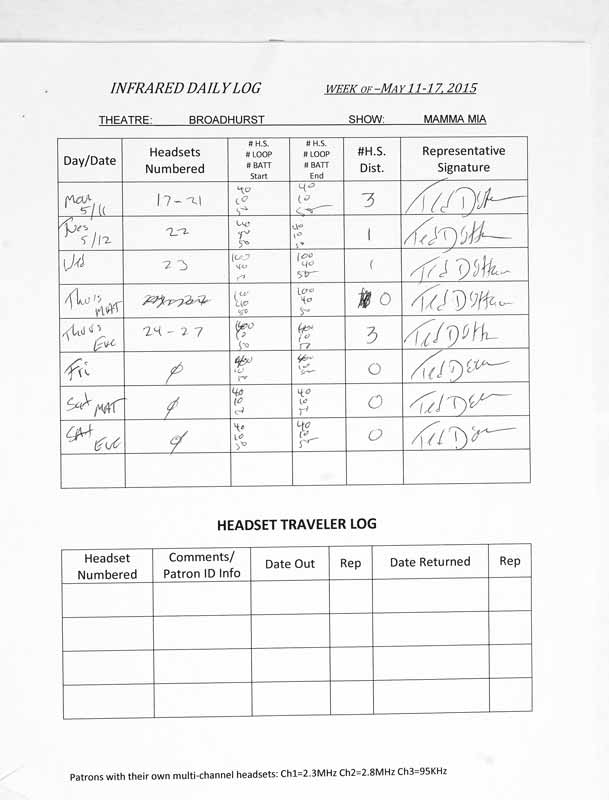 INFRARED DAILY LOG WEEK OF –MAY 11-17, 2015
THEATRE: BROADHURST SHOW: MAMMA MIA
Day/Date Headsets Numbered # H.S. # LOOP # BATT Start # H.S. # LOOP # BATT End #H.S. Dist. Representative Signature
Mon 5/11 17-21 40 10 50 40 10 50 3
Tues 5/12 22 40 10 50 40 10 50 1
Wed 23 100 40 50 100 40 50 1
Thurs MAT 100 40 50 100 40 50 0
Thurs Eve 24-27 10 50 10 50 3
Fri ∅ 10 50 10 50 0
Sat MAT ∅ 40 10 50 40 10 50 0
SAT Eve ∅ 40 10 50 40 10 50 0
HEADSET TRAVELER LOG
Headset Numbered Comments/ Patron ID Info Date Out Rep Date Returned Rep
Patrons with their own multi-channel headsets: Ch1=2.3MHz Ch2=2.8MHz Ch3=95KHz